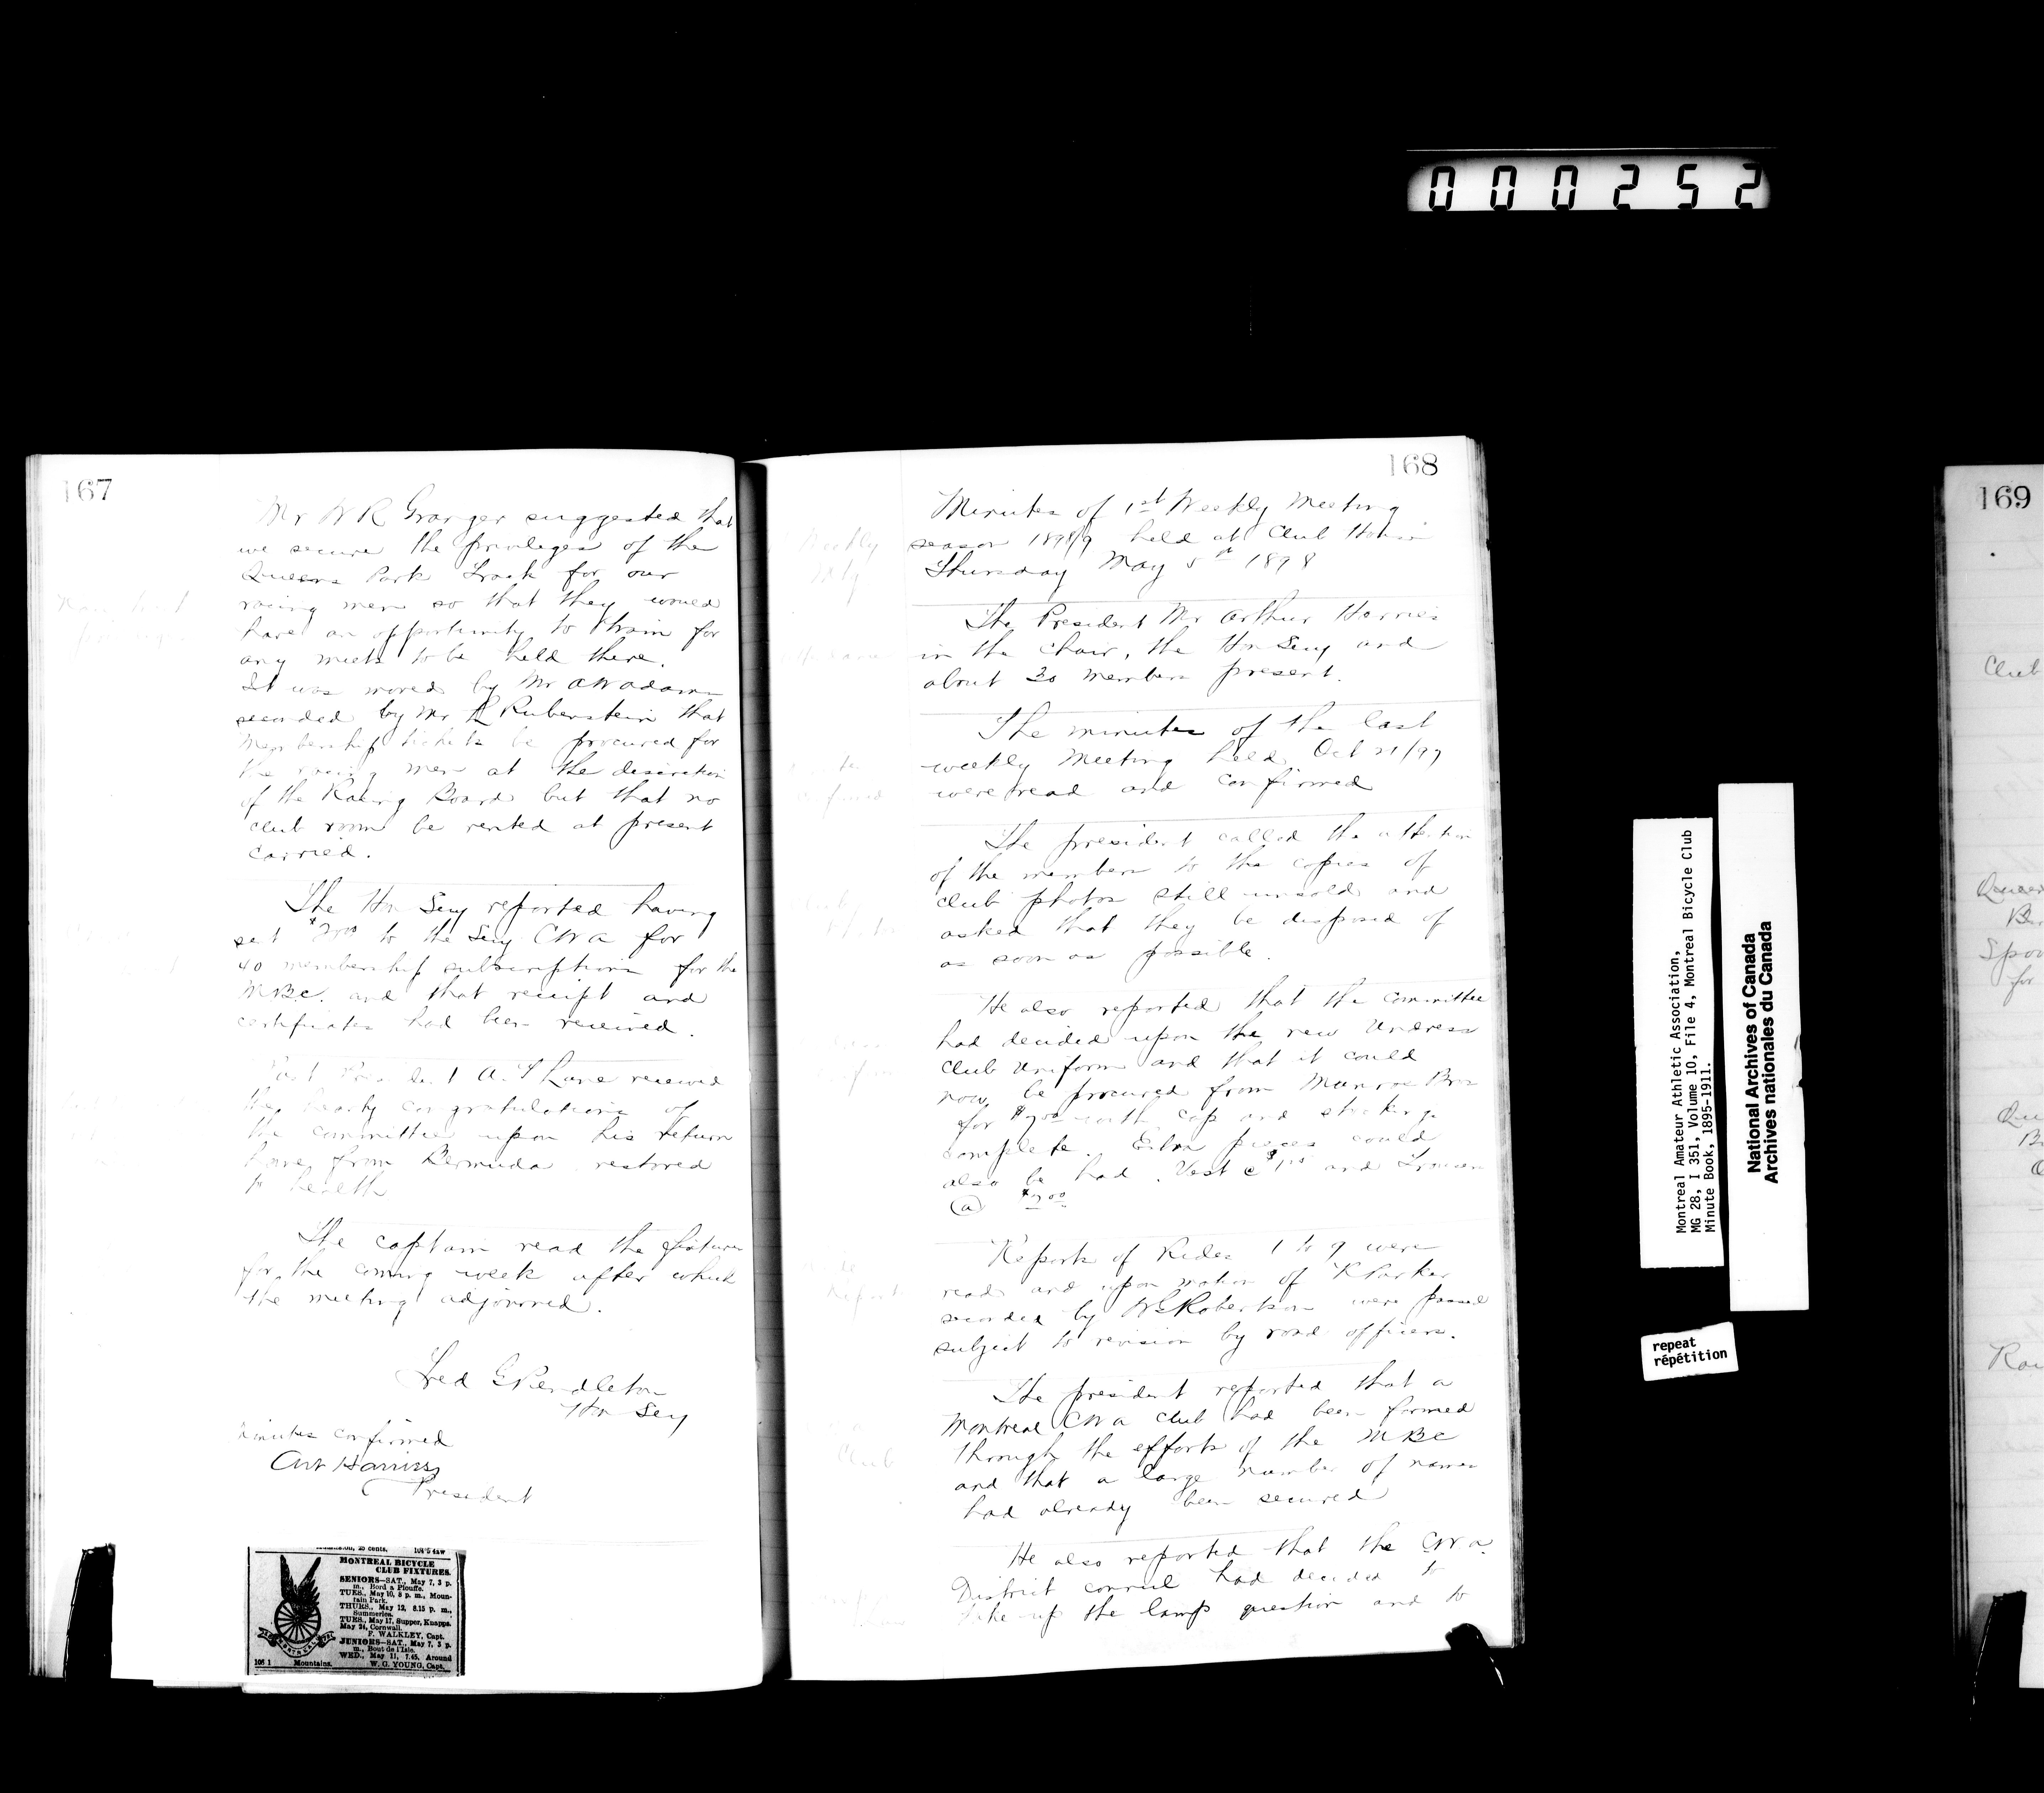 000252
167
Mr W R Granger suggested that
we secure the privileges of the
Queens Park Track for our
racing men so that they would
have an opportunity to train for
any meets to be held there.
It was moved by Mr A W Adams
seconded by Mr L Rubenstein that
Membership tickets be procured for
the racing men at the discretion
of the Racing Board but that no
club room be rented at present
carried.
The Hon Secy reported having
sent to the Secy CWA for
40 membership subscriptions for the
MBC. and that receipt and
certificates had been received.
Past President A. T Lane received
the hearty congratulations of
the committee upon his return
home from Bermuda restored
to health
The captain read the fixtures
for the coming week after which
the meeting adjourned.
Fred G Pendleton
Hon Secy
Minutes confirmed
Art Harriss
President
25 cents.
MONTREAL BICYCLE
CLUB FIXTURES.
SENIORS—SAT., May 7, 3 p.
m., Bord a Plouffe.
TUES., May 10, 8 p. m., Moun-
tain Park.
THURS., May 12, 8.15 p. m.,
Summerlea.
TUES., May 17, Supper, Knapps.
May 24, Cornwall.
F. WALKLEY, Capt.
JUNIORS—SAT., May 7, 3 p.
m., Bout de l'Isle.
WED., May 11, 7.45, Around
Mountains.
W. G. YOUNG, Capt.
MONTREAL
168
Minutes of 1st Weekly Meeting
season 1898/9 held at Club House
Thursday May 5th 1898
Weekly
Mtg
The President Mr Arthur Harriss
in the Chair, the Hon Secy and
about 30 members present.
The minutes of the last
weekly Meeting held Oct 21/97
were read and confirmed
The president called the attention
of the members to the copies of
club photos still unsold and
asked that they be disposed of
as soon as possible.
He also reported that the committee
had decided upon the new Undress
Club Uniform and that it could
now be procured from Munroe Bros
for with cap and stockings
complete. Extra pieces could
also be had. Vest and Trousers
@
Reports of Rides 1 to 9 were
read and upon motion of R Parker
seconded by Robertson were passed
subject to revision by road officers.
The president reported that a
Montreal CWA Club had been formed
through the efforts of the MBC
and that a large number of names
had already been secured
Club
He also reported that the CWA
District council had decided to
take up the lamp question and to
Montreal Amateur Athletic Association,
MG 28, I 351, Volume 10, File 4, Montreal Bicycle Club
Minute Book, 1895-1911.
National Archives of Canada
Archives nationales du Canada
repeat
répétition
169
Club
Queen
Spoo
for